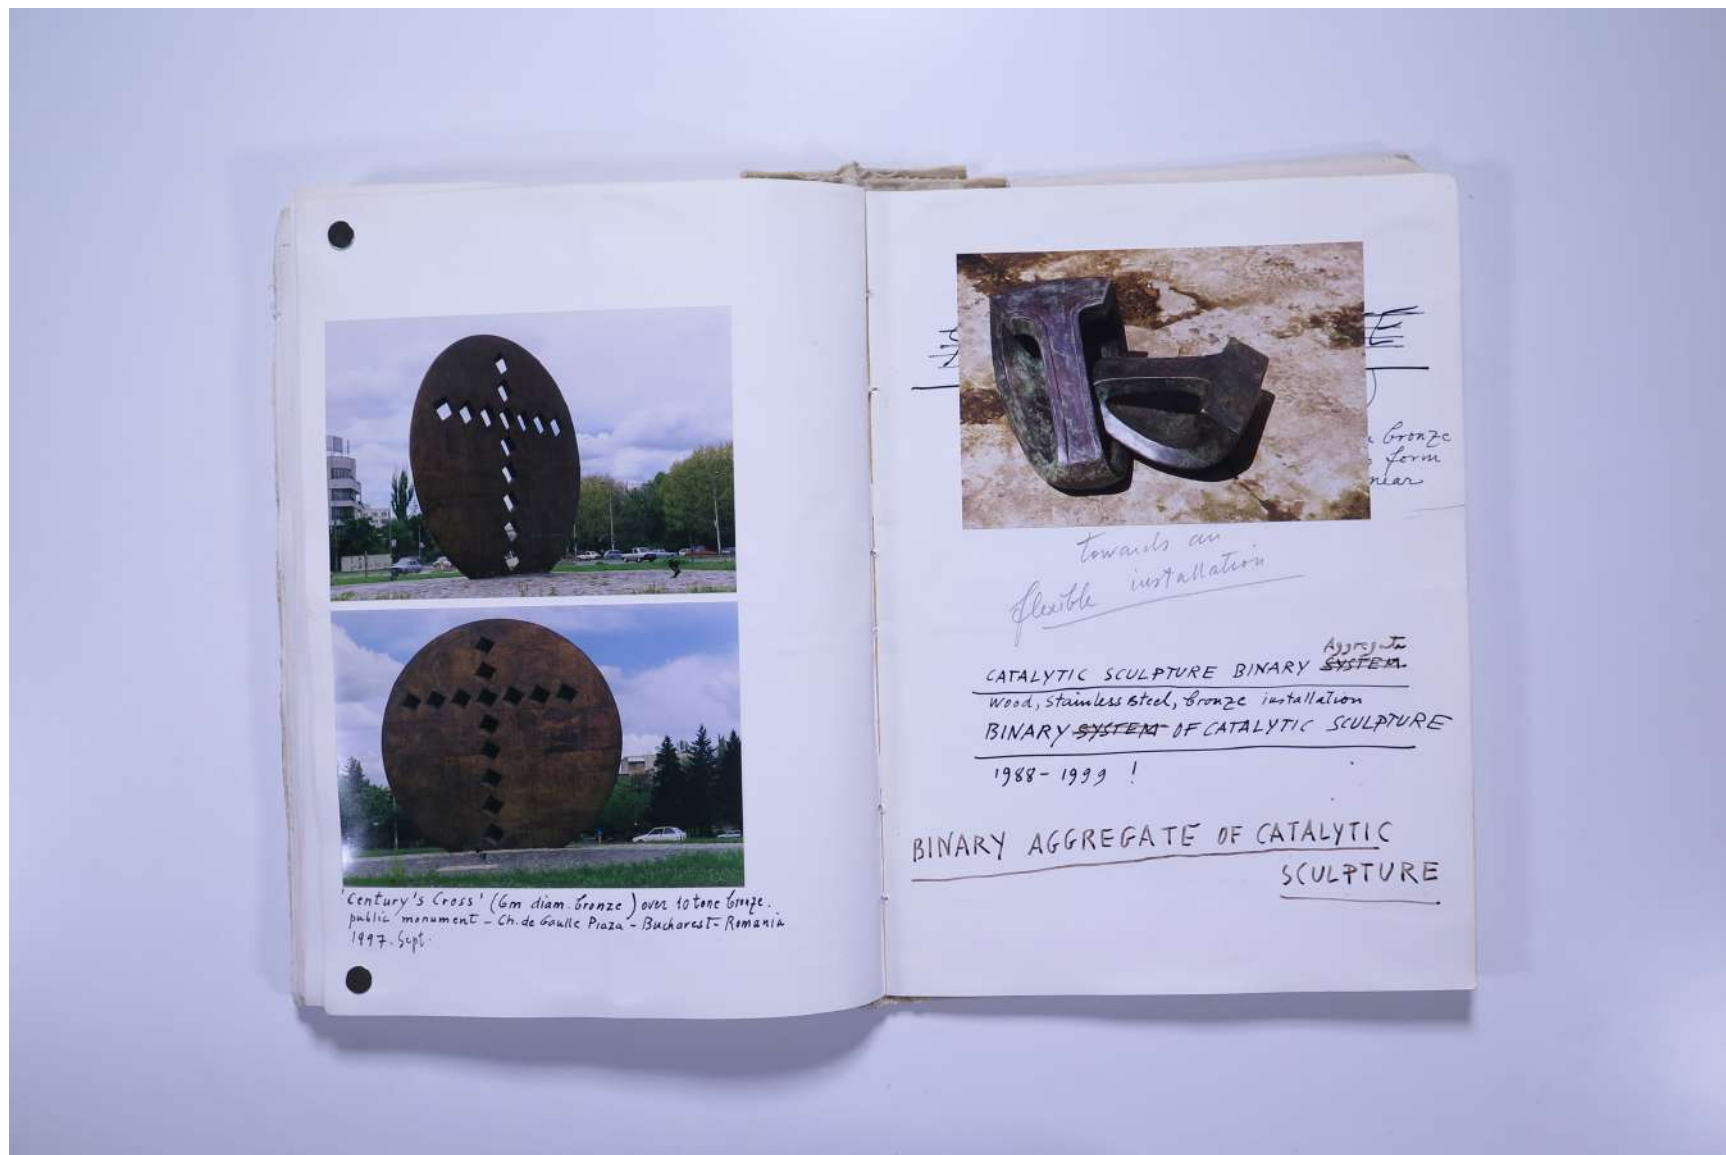 'Century's Cross' (6m diam. bronze) over 10 tone bronze.
public monument - Ch. de Gaulle Piaza - Bucharest - Romania
1997. Sept.
bronze
form
near
towards an
flexible installation
Aggregate
CATALYTIC SCULPTURE BINARY SYSTEM
Wood, stainless steel, bronze installation
BINARY SYSTEM OF CATALYTIC SCULPTURE
1988 - 1999 !
BINARY AGGREGATE OF CATALYTIC
SCULPTURE